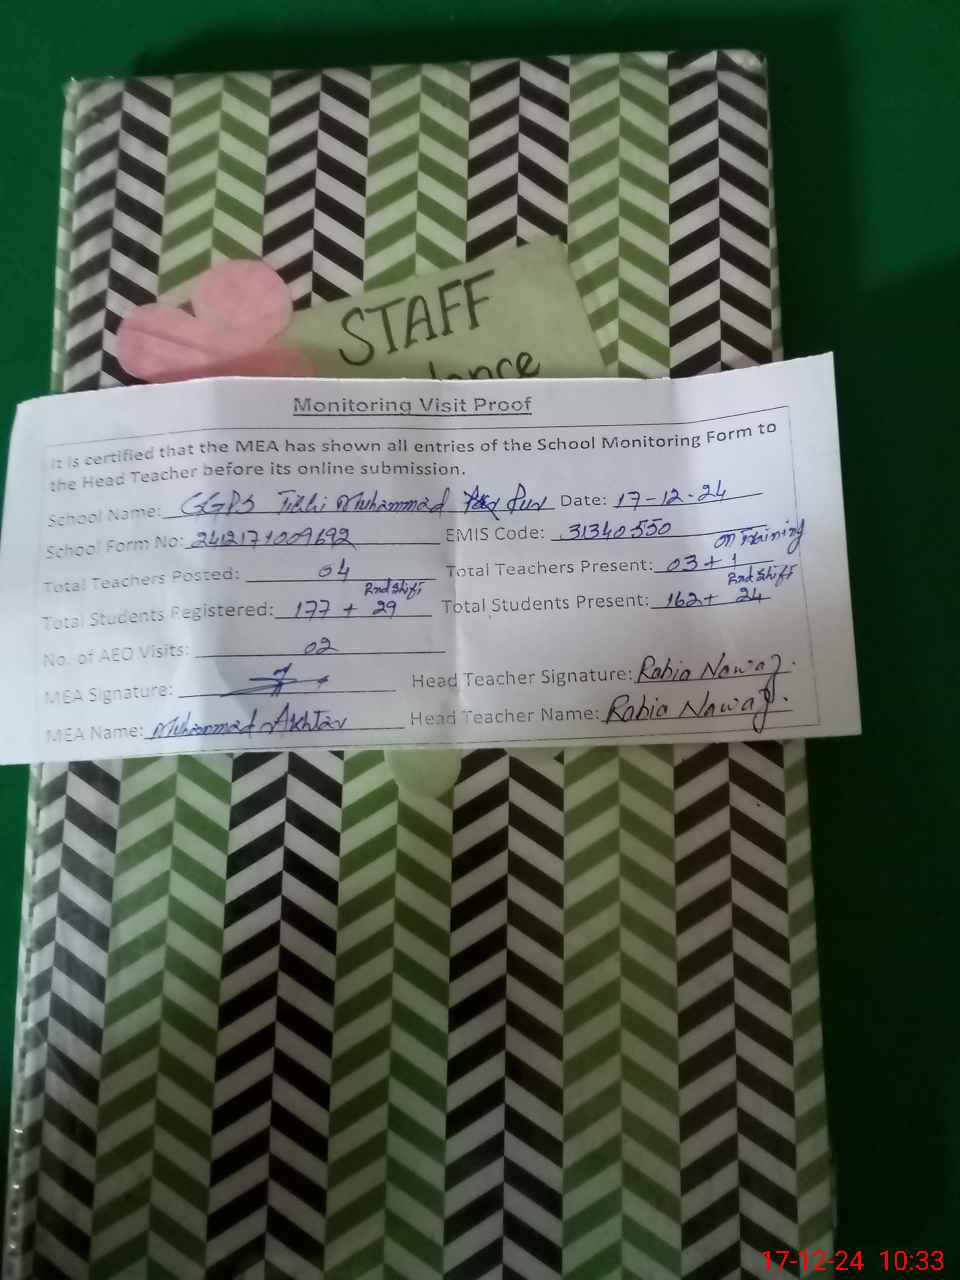 STAFF
Monitoring Visit Proof
It is certified that the MEA has shown all entries of the School Monitoring Form to
the Head Teacher before its online submission.
School Name: GGPS Tibbi Muhammad Pur Date: 17-12-24
School Form No: 2412171009692 EMIS Code: 31340550
on Training
Total Teachers Posted: 04 Total Teachers Present: 03+1
2nd Shift 2nd Shift
Total Students Registered: 177 + 29 Total Students Present: 162+ 24
No. of AEO Visits: 02
MEA Signature: Head Teacher Signature: Rabia Nawaz.
MEA Name: Muhammad Akhtar Head Teacher Name: Rabia Nawaz.
17-12-24 10:33